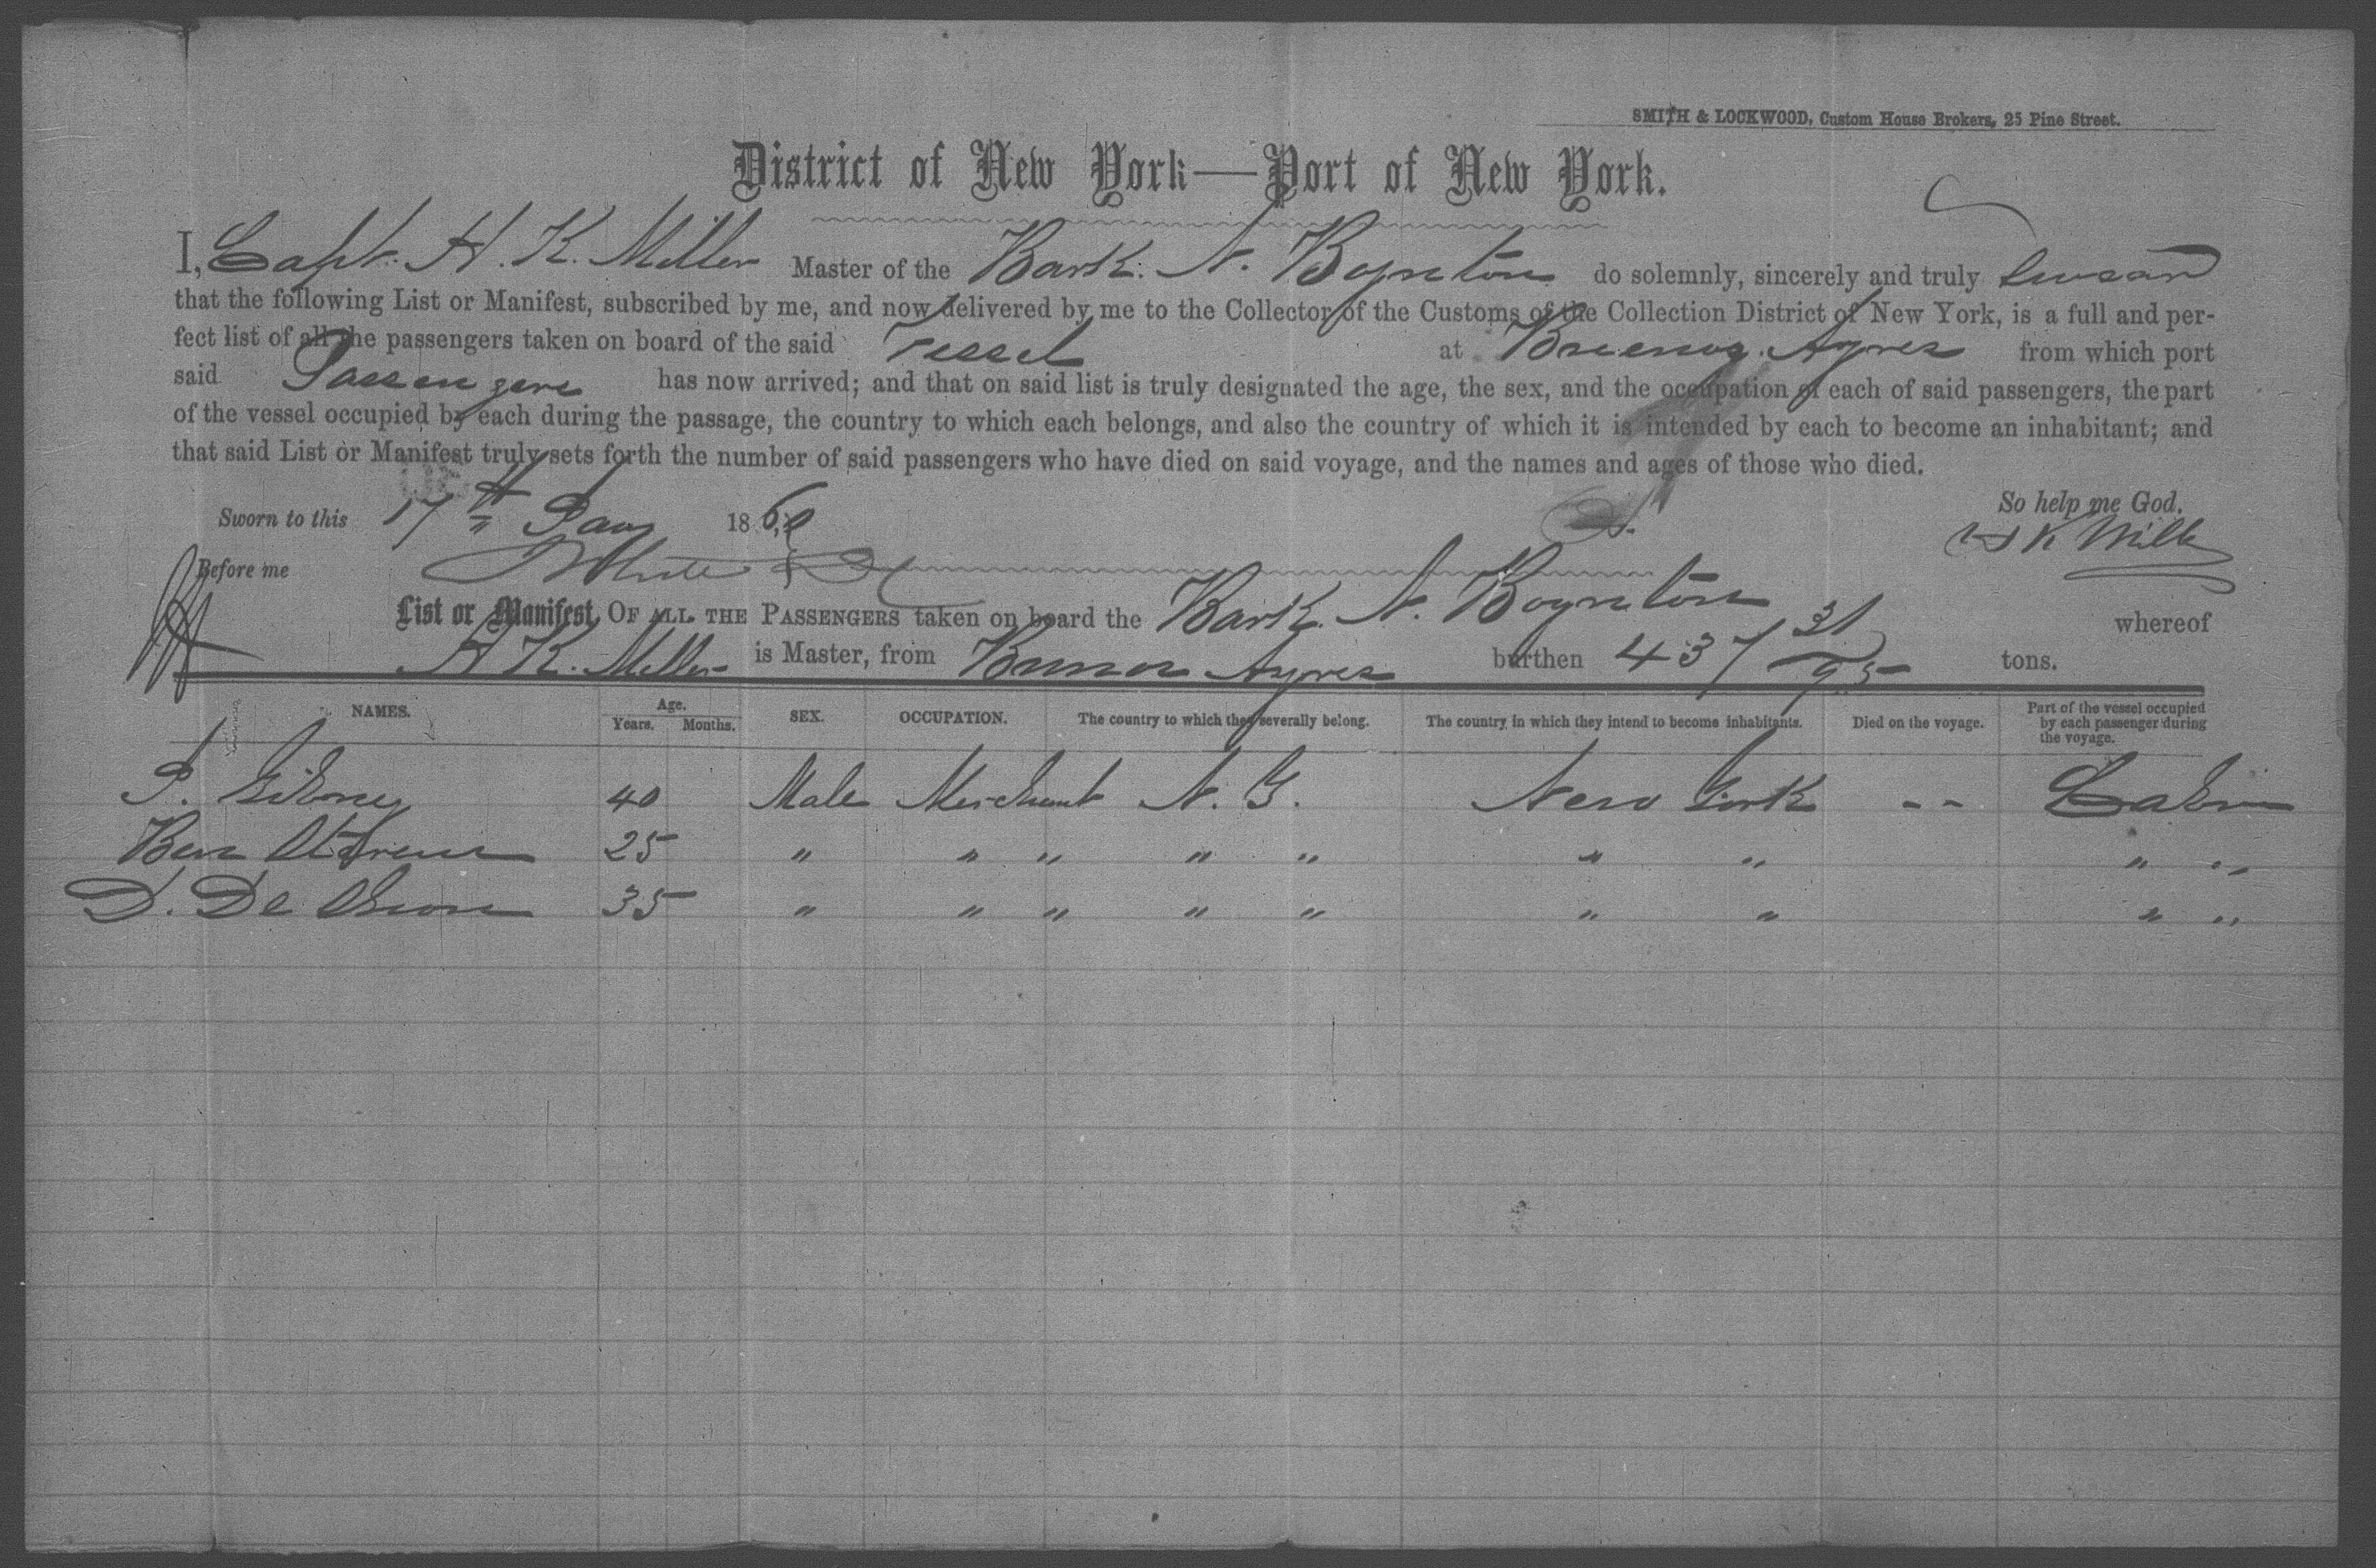 SMITH & LOCKWOOD, Custom House Brokers, 25 Pine Street.
District of New York—Port of New York.
I, Capt. H. K. Miller Master of the Bark. N. Boynton do solemnly, sincerely and truly swear
that the following List or Manifest, subscribed by me, and now delivered by me to the Collector of the Customs of the Collection District of New York, is a full and per-
fect list of all the passengers taken on board of the said Vessel at Buenos Ayres from which port
said Passengers has now arrived; and that on said list is truly designated the age, the sex, and the occupation of each of said passengers, the part
of the vessel occupied by each during the passage, the country to which each belongs, and also the country of which it is intended by each to become an inhabitant; and
that said List or Manifest truly sets forth the number of said passengers who have died on said voyage, and the names and ages of those who died.
So help me God.
Sworn to this 17th Jany 1860
H K Miller
Before me
List or Manifest, OF ALL THE PASSENGERS taken on board the Bark. N. Boynton whereof
H K. Miller is Master, from Buenos Ayres burthen 437 31/95 tons.
NAMES. Age. Years. Months. SEX. OCCUPATION. The country to which they severally belong. The country in which they intend to become inhabitants. Died on the voyage. Part of the vessel occupied by each passenger during the voyage.
40 Male Merchant N. Y. New York -- Cabin
Ben 25 " " " " " " " " "
D. De 35 " " " " " " " " "